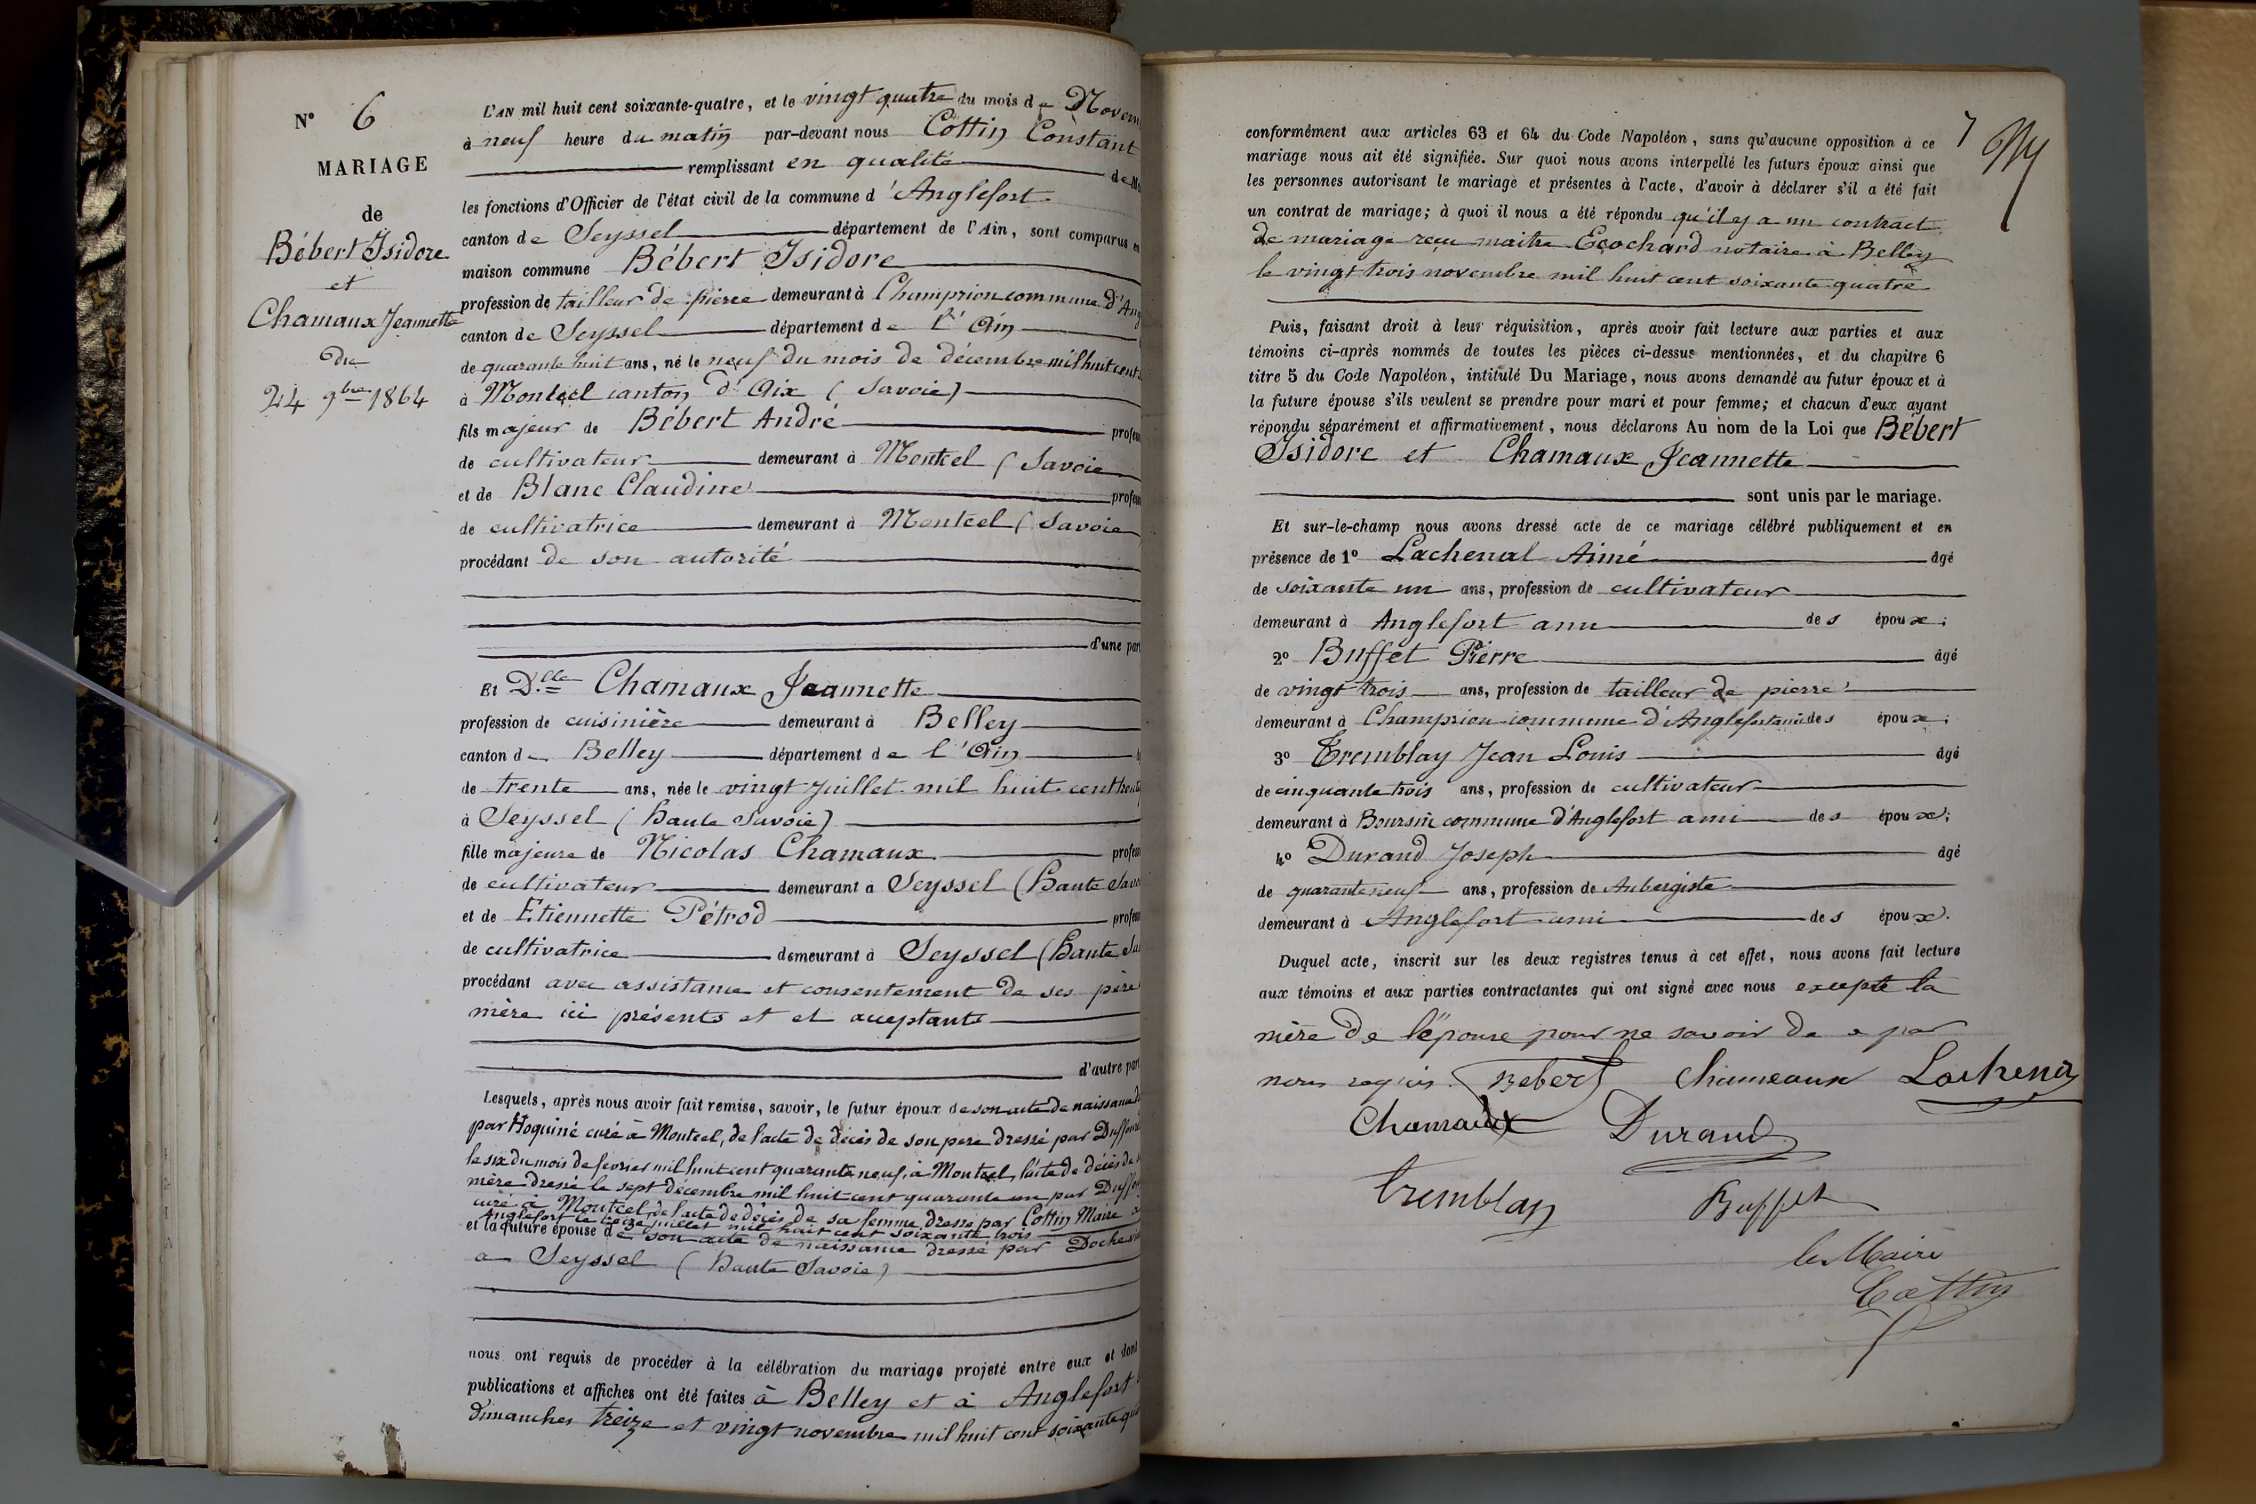 N° 6
MARIAGE
de
Bébert Isidore
et
Chamaux Jeannette
du
24 9bre 1864
L'AN mil huit cent soixante-quatre, et le vingt quatre du mois de Novem
à neuf heure du matin par-devant nous Cottin Constant
remplissant en qualité de M
les fonctions d'Officier de l'état civil de la commune d'Anglefort
canton de Seyssel département de l'Ain, sont comparus en
maison commune Bébert Isidore
profession de tailleur de pierre demeurant à Champrion commune d'Ang
canton de Seyssel département de l'Ain
de quarante huit ans, né le neuf du mois de décembre mil huit cent
à Montcel canton d'Aix (Savoie)
fils majeur de Bébert André profes
de cultivateur demeurant à Montcel (Savoie
et de Blanc Claudine profes
de cultivatrice demeurant à Montcel (Savoie
procédant de son autorité
d'une part
Et Dlle Chamaux Jeannette
profession de cuisinière demeurant à Belley
canton de Belley département de l'Ain
de trente ans, née le vingt Juillet mil huit cent trente
à Seyssel (Haute Savoie)
fille majeure de Nicolas Chamaux profes
de cultivateur demeurant à Seyssel (Haute Savo
et de Etiennette Pétrod profes
de cultivatrice demeurant à Seyssel (Haute Sa
procédant avec assistance et consentement de ses père
mère ici présents et et acceptants
d'autre part
Lesquels, après nous avoir fait remise, savoir, le futur époux de son acte de naissance
par Hoguiné curé à Montcel, de l'acte de décès de son père dressé par Duffour
le six du mois de fevrier mil huit cent quarante neuf, à Montcel, l'acte de décès de
mère dressé le sept décembre mil huit cent quarante un par Duffo
curé à Montcel, de l'acte de décès de sa femme dressé par Cottin Maire
Anglefort le treize juillet mil huit cent soixante trois
et la future épouse de son acte de naissance dressé par
à Seyssel (Haute Savoie)
nous ont requis de procéder à la célébration du mariage projeté entre eux et dont
publications et affiches ont été faites à Belley et à Anglefort
dimanches treize et vingt novembre mil huit cent soixante qua
7
conformément aux articles 63 et 64 du Code Napoléon, sans qu'aucune opposition à ce
mariage nous ait été signifiée. Sur quoi nous avons interpellé les futurs époux ainsi que
les personnes autorisant le mariage et présentes à l'acte, d'avoir à déclarer s'il a été fait
un contrat de mariage; à quoi il nous a été répondu qu'il y a un contract
de mariage reçu maitre Ecochard notaire à Belley
le vingt trois novembre mil huit cent soixante quatre
Puis, faisant droit à leur réquisition, après avoir fait lecture aux parties et aux
témoins ci-après nommés de toutes les pièces ci-dessus mentionnées, et du chapitre 6
titre 5 du Code Napoléon, intitulé Du Mariage, nous avons demandé au futur époux et à
la future épouse s'ils veulent se prendre pour mari et pour femme; et chacun d'eux ayant
répondu séparément et affirmativement, nous déclarons Au nom de la Loi que Bébert
Isidore et Chamaux Jeannette
sont unis par le mariage.
Et sur-le-champ nous avons dressé acte de ce mariage célébré publiquement et en
présence de 1° Lachenal Aimé âgé
de soixante un ans, profession de cultivateur
demeurant à Anglefort ami des époux;
2° Buffet Pierre âgé
de vingt trois ans, profession de tailleur de pierre
demeurant à Champrion commune d'Anglefort ami des époux;
3° Tremblay Jean Louis âgé
de cinquante trois ans, profession de cultivateur
demeurant à Boursin commune d'Anglefort ami des époux;
4° Durand Joseph âgé
de quarante neuf ans, profession de Aubergiste
demeurant à Anglefort ami des époux.
Duquel acte, inscrit sur les deux registres tenus à cet effet, nous avons fait lecture
aux témoins et aux parties contractantes qui ont signé avec nous excepté la
mère de l'épouse pour ne savoir de e par
nous requis. Bebert Chameaux Lachenal
Chamaux Durand
Tremblay Buffet
le Maire
Cottin